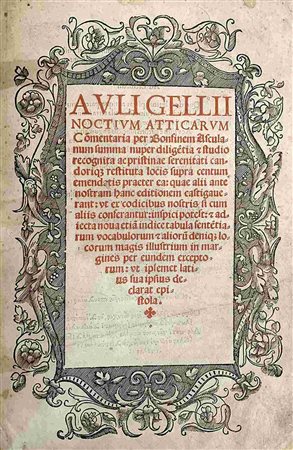 AVLI GELLII
NOCTIVM ATTICARVM
Cōmentaria per Bonfinem Ascula
num summa nuper diligētia ⁊ studio
recognita ac pristinae serenitati can
doriqʒ restituta locis supra centum
emendatis praeter ea: quae alii ante
nostram hanc editionem castigaue
rant: vt ex codicibus nostris si cum
aliis conferantur: inspici potest: ⁊ ad
iecta noua etiā indice tabula sentētia
rum vocabulorum ⁊ aliorū deniqʒ lo
corum magis illustrium in mar
gines per eundem excepto
rum: vt ipsemet lati
us sua ipsius de
clarat epi
stola.